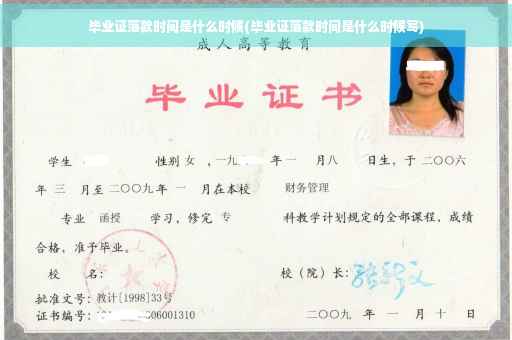 毕业证落款时间是什么时候(毕业证落款时间是什么时候写)
成人高等教育
毕业证书
学生 性别 女 ，一九 年一 月八 日生，于二〇〇六
年 三 月至二〇〇九年 一 月在本校 财务管理
专业 函授 学习，修完 专 科教学计划规定的全部课程，成绩
合格，准予毕业。
校 名： 校（院）长：
批准文号：教计[1998]33号
证书编号： 06001310 二〇〇九 年 一 月 十 日